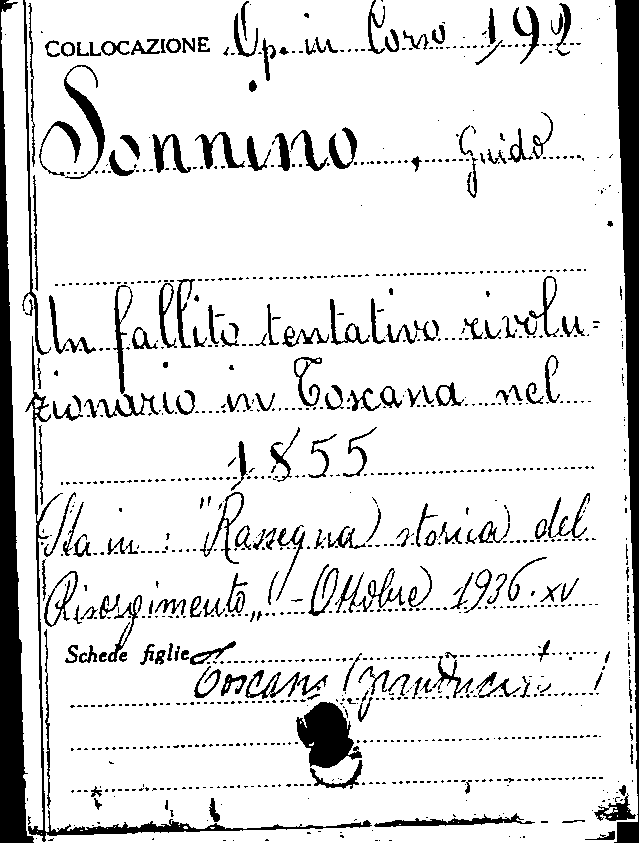 COLLOCAZIONE Op. in Corso 192
Sonnino, Guido
Un fallito tentativo rivolu=
zionario in Toscana nel
1855
Sta in: "Rassegna storica del
Risorgimento„ - Ottobre 1936. XV
Schede figlie
Toscana